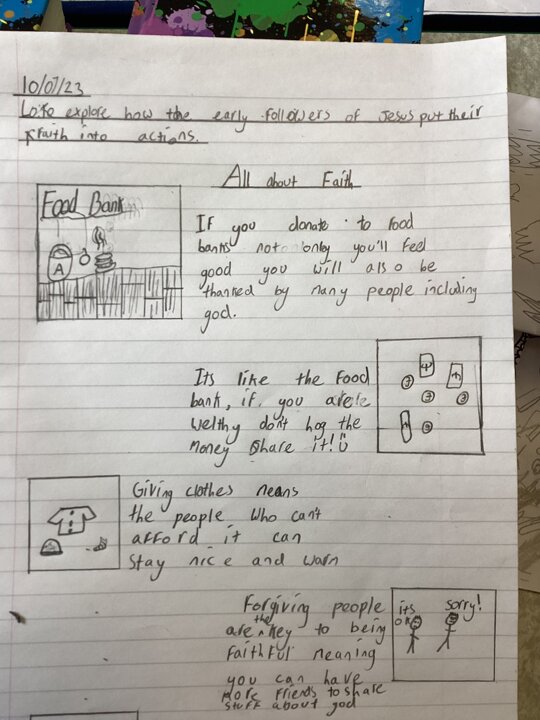 10/07/23
Lo: to explore how the early followers of Jesus put their
faith into actions.
All about Faith
Food Bank
A
If you donate to food
banks not only you'll feel
good you will also be
thanked by many people including
god.
Its like the Food
bank, if you are
welthy don't hog the
money share it!
Giving clothes means
the people who can't
afford it can
stay nice and warm
Forgiving people
are the key to being
faithful meaning
you can have
more friends to share
stuff about god
its ok
sorry!